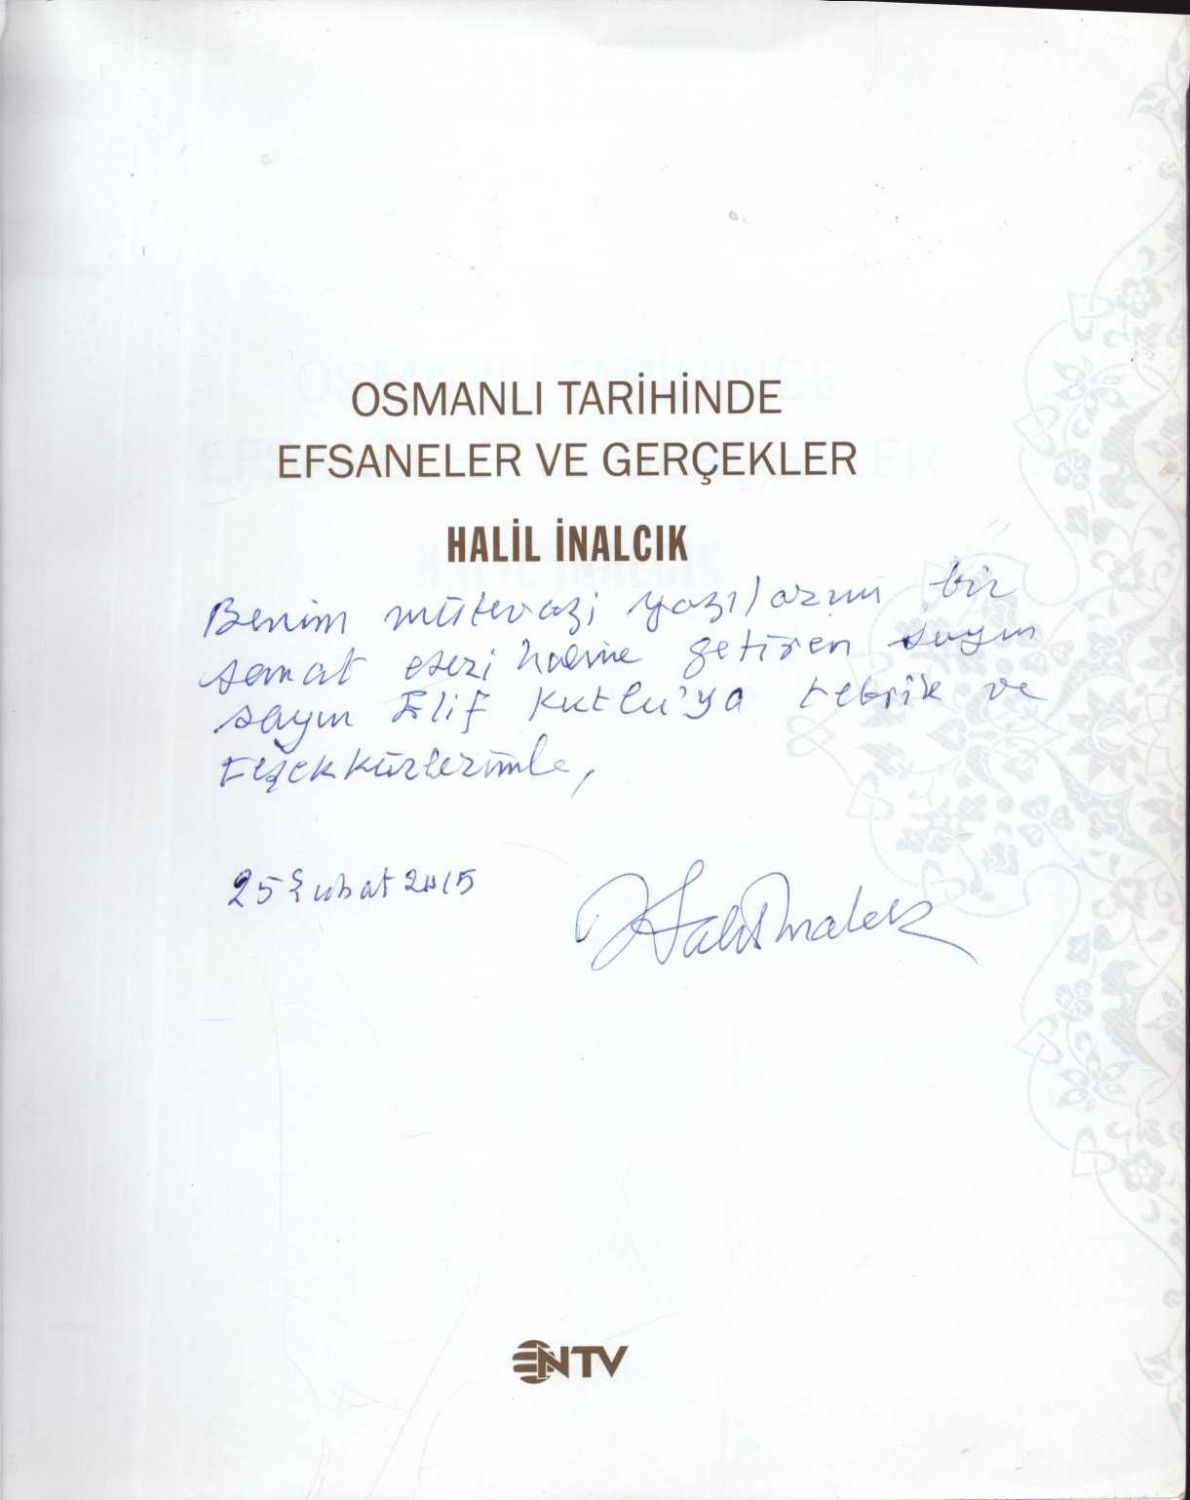 OSMANLI TARİHİNDE
EFSANELER VE GERÇEKLER
HALİL İNALCIK
Benim mütevazi yazılarımı bir
sanat eseri haline getiren sayın
sayın Elif Kutlu'ya tebrik ve
teşekkürlerimle,
25 Şubat 2015
Halil İnalcık
NTV